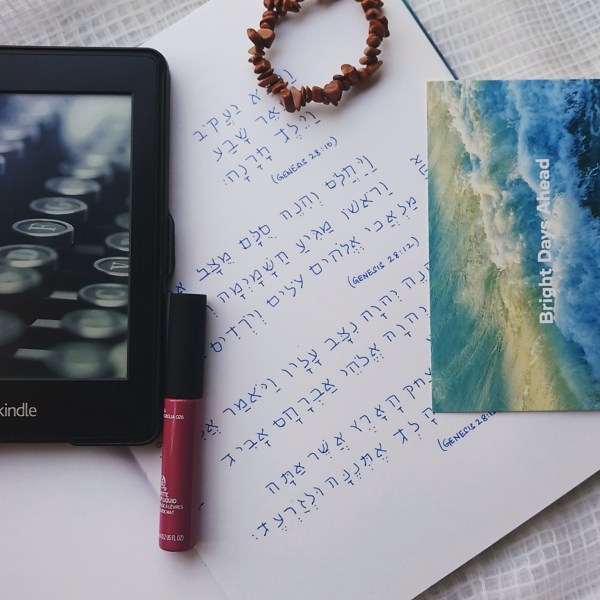 יַעֲקֹב
שָׁבַע
וַיֵּלֶךְ חָרָנָה:
(GENESIS 28:10)
וַיַּחֲלֹם וְהִנֵּה סֻלָּם מֻצָּב
וְרֹאשׁוֹ מַגִּיעַ הַשָּׁמָיְמָה
מַלְאֲכֵי אֱלֹהִים עֹלִים וְיֹרְדִים
(GENESIS 28:12)
יְהוָה נִצָּב עָלָיו וַיֹּאמַר
יְהוָה אֱלֹהֵי אַבְרָהָם אָבִיךָ
הָאָרֶץ אֲשֶׁר אַתָּה
לְךָ אֶתְּנֶנָּה וּלְזַרְעֶךָ:
(GENESIS 28:
kindle
Bright Days Ahead